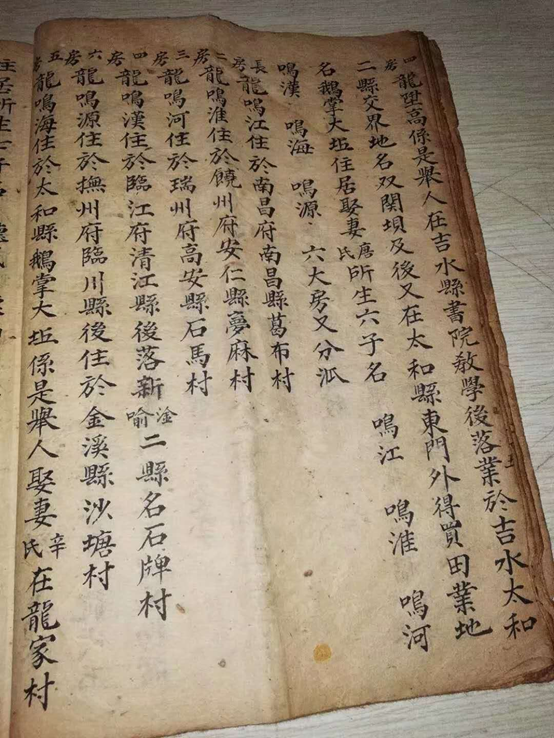 四房龍陞高係是舉人在吉水縣書院教學後落業於吉水太和
二縣交界地名双関垻及後又在太和縣東門外得買田業地
名鵝掌大坵住居娶妻唐氏所生六子名 鳴江 鳴淮 鳴河
鳴漢 鳴海 鳴源 六大房又分派
長房龍鳴江住於南昌府南昌縣葛布村
二房龍鳴淮住於饒州府安仁縣蔴村
三房龍鳴河住於瑞州府高安縣石馬村
四房龍鳴漢住於臨江府清江縣後落新淦喻二縣名石牌村
六房龍鳴源住於撫州府臨川縣後住於金溪縣沙塘村
五房龍鳴海住於太和縣鵝掌大坵係是舉人娶妻辛氏在龍家村
住居所生七子